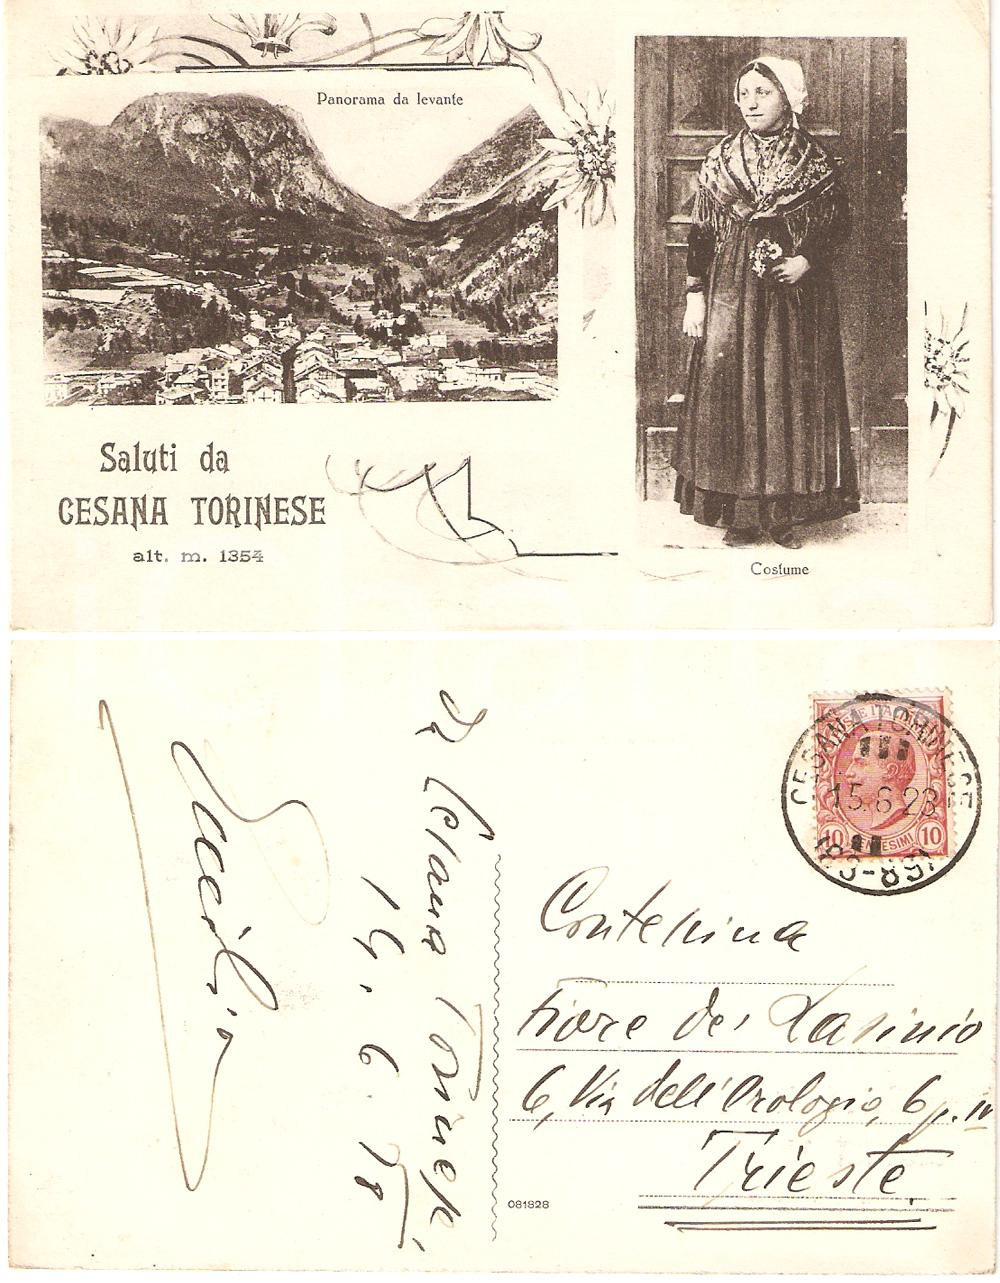 Panorama da levante
Saluti da
CESANA TORINESE
alt. m. 1354
Costume
CESANA TORINESE
15.6.23
10 CENTESIMI 10
Da Cesana Torinese,
14. 6. 
Cecilia
Contessina
Fiore de' Lasinio
6, Via dell'Orologio, 6 p. IV
Trieste.
081828